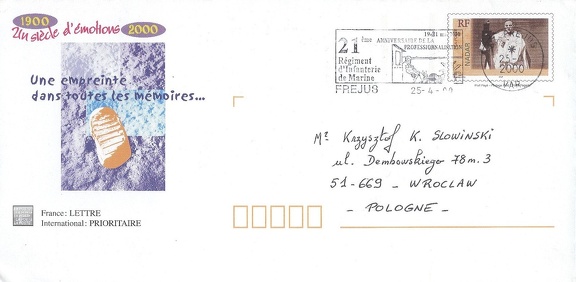 1900
Un siècle d'émotions 2000
Une empreinte
dans toutes les mémoires...
France: LETTRE
International: PRIORITAIRE
21ème ANNIVERSAIRE DE LA
PROFESSIONNALISATION
Régiment
d'Infanterie
de Marine
FREJUS
25-4-00
RF
NADAR
25
2000
VAR
Mr Krzysztof K. SLOWINSKI
ul. Dembowskiego 78 m. 3
51-669 - WROCLAW
- POLOGNE -